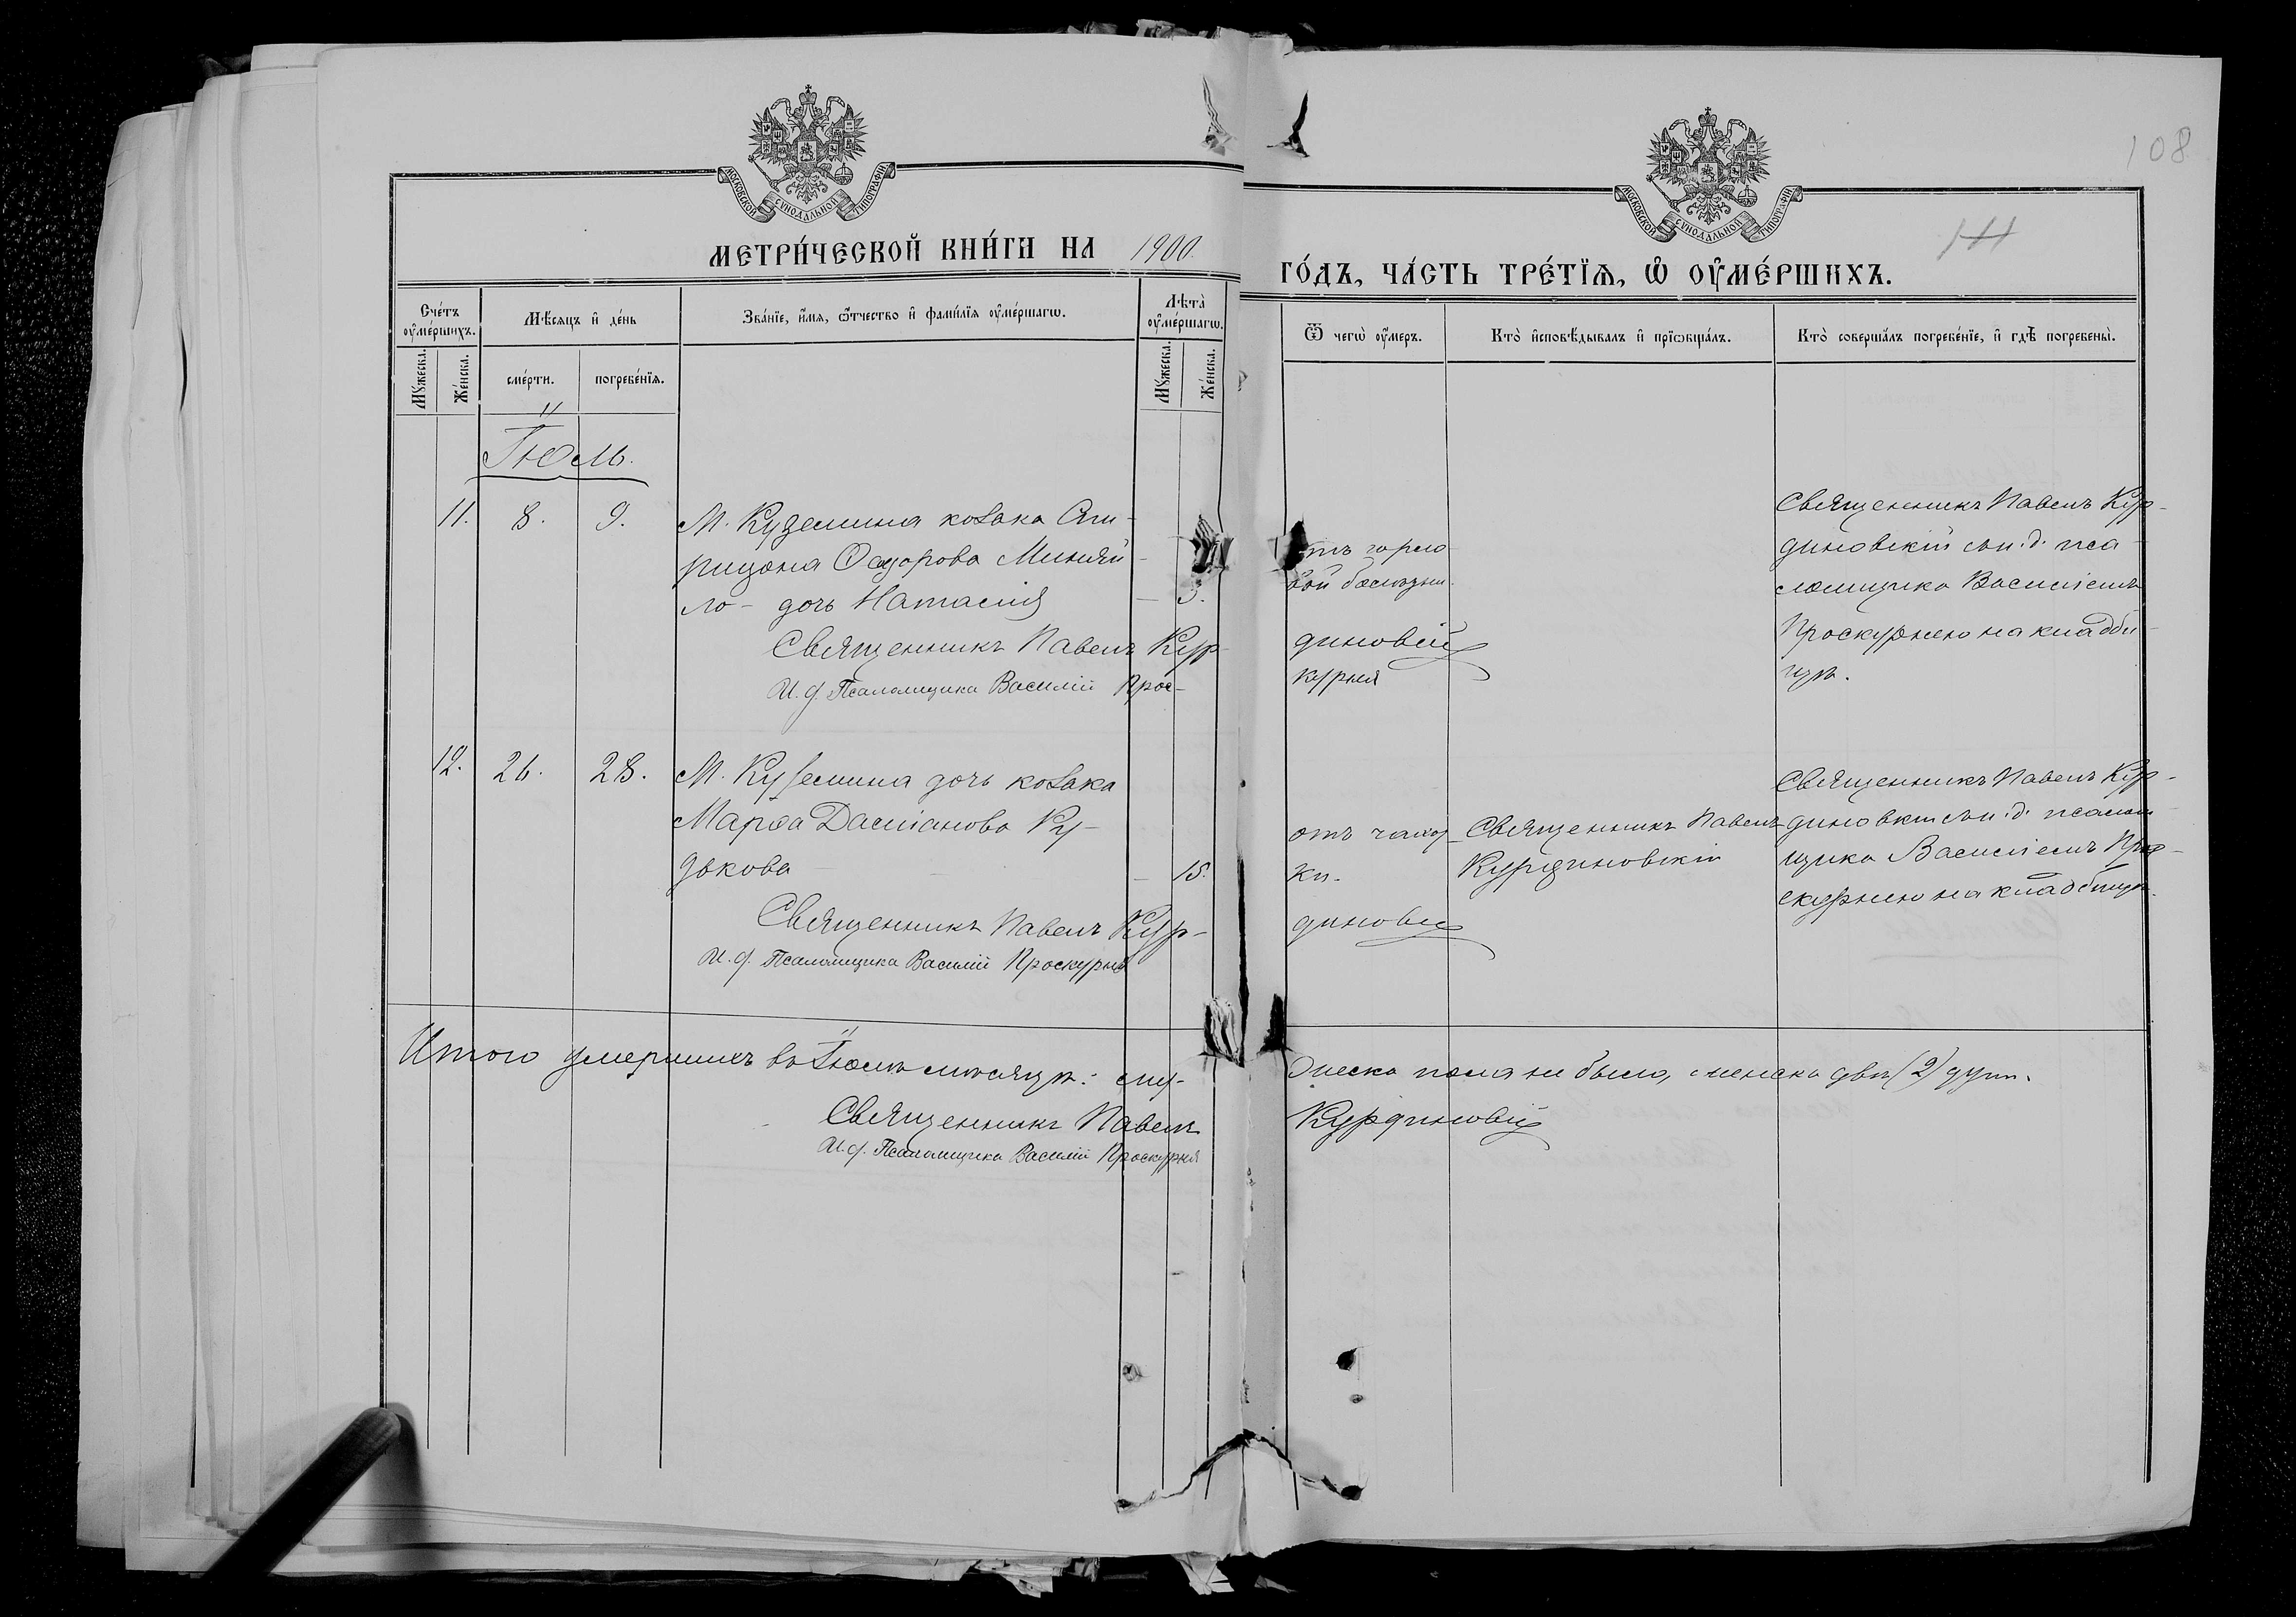 108
МОСКОВСКОЙ СѴНОДАЛЬНОЙ ТИПОГРАФІИ
МОСКОВСКОЙ СѴНОДАЛЬНОЙ ТИПОГРАФІИ
111
МЕТРИ́ЧЕСКОЙ КНИ́ГИ НА 1900
ГО́ДЪ, ЧА́СТЬ ТРЕ́ТЇѦ, Ѡ҆ ОУ҆МЕ́РШИХЪ.
Сче́тъ оу҆ме́ршихъ.
Мѣ́сяцъ и҆ де́нь
Зва́нїе, и҆́мя, ѻ҆́тчество и҆ фами́лїя оу҆ме́ршагѡ.
Лѣ̀та оу҆ме́ршагѡ.
Ѿ чегѡ̀ оу҆́меръ.
Кто̀ и҆сповѣ́дывалъ и҆ прїѡбща́лъ.
Кто̀ соверша́лъ погребе́нїе, и҆ гдѣ̀ погребены̀.
Мꙋ́жеска.
Же́нска.
сме́рти.
погребе́нїя.
Мꙋ́жеска.
Же́нска.
Іюль.
11. 8. 9. М. Куземина козака Спи-
ридона Федорова Миняй-
ло - дочь Наталия — 3.
Священникъ Павелъ Кур-
диновскій
И. д. Псаломщика Василій Прос-
курня
отъ горло
вой болѣзни.
Священникъ Павелъ Кур-
диновскій съ и. д. пса-
ломщика Василіемъ
Проскурнею на кладби-
щѣ.
12. 26. 28. М. Куземина дочь козака
Марѳа Даміанова Ку-
дькова — 15.
Священникъ Павелъ Кур-
диновскій
И. д. Псаломщика Василій Проскурня
отъ чахот
ки.
Священникъ Павелъ
Курдиновскій
Священникъ Павелъ Кур-
диновскій съ и. д. псалом
щика Василіемъ Про-
скурнею на кладбищѣ.
Итого умершихъ въ Іюлѣ мѣсяцѣ: му-
жеска пола не было, женска двѣ (2) души.
Священникъ Павелъ Курдиновскій
И. д. Псаломщика Василій Проскурня